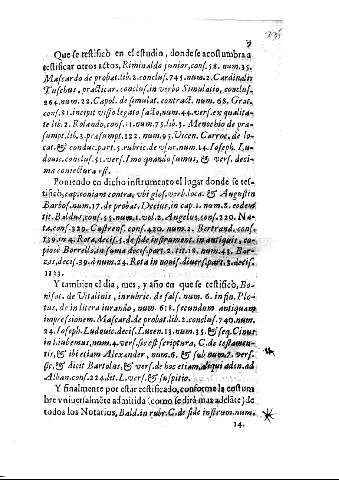 Que se testificò en el estudio, donde se acostumbra a
testificar otros actos, Riminaldo junior, cons. 58. num. 35.
Mascardo de probat. lib. 2. conclus. 745. num. 2. Cardinalis
Tuschus, practicar. conclus. in verbo Simulatio, conclus.
264. num. 22. Capol. de simulat. contract. num. 68. Grat.
cons. 81. incipit viso legato facto, num. 44. vers. ex qualita-
te lib. 2. Rolando, cons. 11. num. 75. lib. 3. Menochio de præ-
sumpt. lib. 3. præsumpt. 122. num. 95. Vicen. Carroc. de lo-
cat. & conduc. part. 5. rubric. de usur. num. 14. Ioseph. Lu-
douic. conclus. 51. vers. Imo quando sumus, & vers. deci-
ma contectura est.
Poniendo en dicho instrumento el lugar donde se tes-
tificò, cap. coniam contra, vbi glos. verb. loca & Augustin
Barbos. num. 17. de probat. Decius, in cap. 1. num. 8. eodem
tit. Baldus, cons. 55. num. 1. vol. 2. Angelus, cons. 220. Na-
ta, cons. 320. Castrens. cons. 420. num. 2. Bertrand. cons.
139. in 4. Rota, decis. 5. de fide instrument. in antiquis, co-
pioso Borrello, in suma decis. part. 2. tit. 18. num. 43. Bar-
zas, decis. 39. à num. 24. Rota in nouis. diuers. part. 3. decis.
1123.
Y tambien el dia, mes, y año en que se testificò, Bo-
nifat. de Vitalinis, in rubric. de fals. num. 6. in fin. Plo-
tus, de in litem iurando, num. 618. secundum antiquam
impressionem. Mascard. de probat. lib. 2. conclus. 740. num.
24. Ioseph. Ludouic. decis. Lucen. 13. num. 35. & seq. Cinus
in l. iubemus, num. 4. vers. sic est scriptura, C. de testamen-
tis, & ibi etiam Alexander, num. 6. & sub num. 7. vers.
sic, & dicit Bartolus, & vers. de hoc etiam, aliqui addit. ad
Alban. cons. 224. lit. L. vers. & suspitio.
Y finalmente por estar testificado, conforme la costum
bre vniuersalmēte admitida (como se dirà mas adelāte) de
todos los Notarios, Bald. in rubr. C. de fide instrum. num.
14.